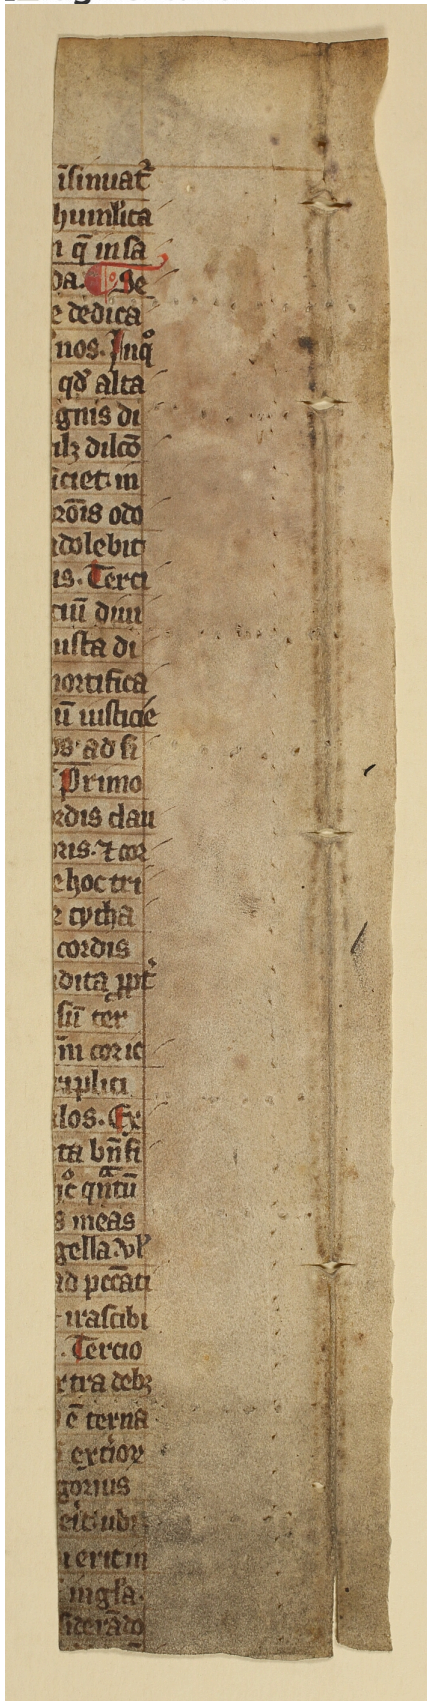 īsinuat᷑
humil'ita
n q̄ in sa
da. ¶ Se
e dedica
nos. Inqͦ
qd̕ alta
gnis di
ilꝫ dilcō
iciet. in
rōis odo
adolebit
is. Terci
ciū diui
iusta di
mortifica
ū iusticie
os. ad si
Primo
rdis clau
oris. ⁊ cor
e hoc tri
e cytha
cordis
dita ꝓpt᷑
sū ter
m̄ cor ic
triplici
los. Ex
ta bn̄fi
qntū
s meas
gella. vl'
ad pccāti
t irascibi
. Tercio
tra debꝫ
ē terna
extioꝝ
gorius
ubi
i erit in
in gl'a.
siderādo